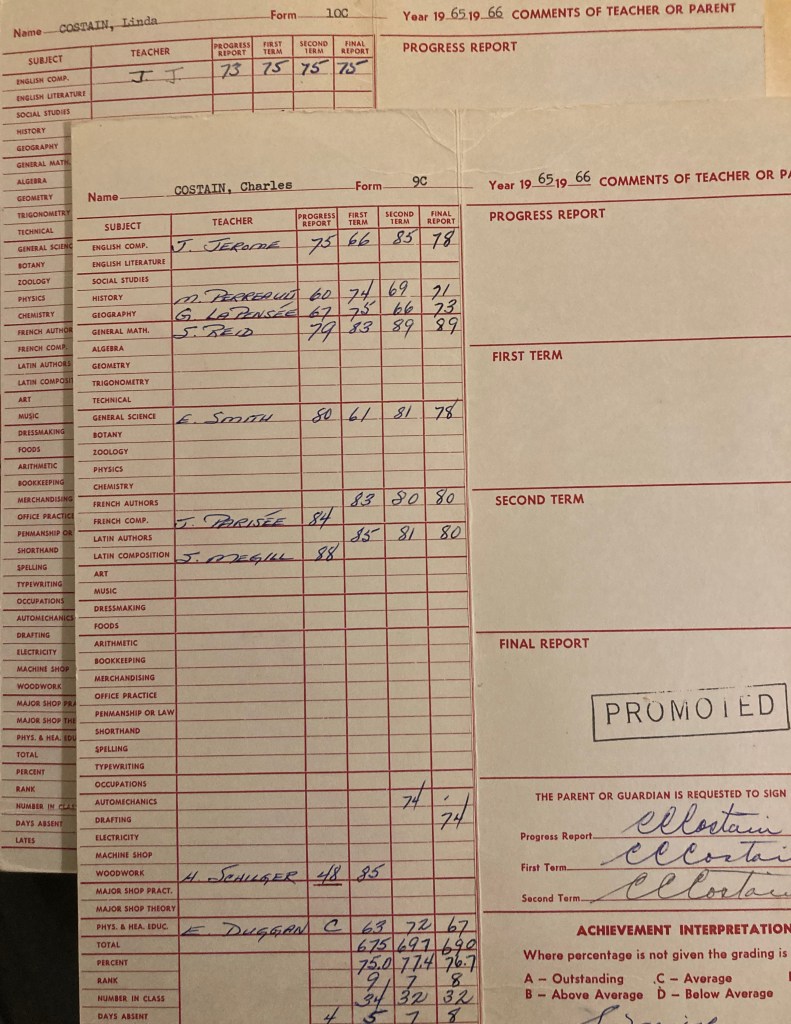 Name COSTAIN, Linda Form 10C Year 19 65 19 66 COMMENTS OF TEACHER OR PARENT
SUBJECT TEACHER PROGRESS REPORT FIRST TERM SECOND TERM FINAL REPORT PROGRESS REPORT
ENGLISH COMP. J. J 73 75 75 75
ENGLISH LITERATURE
SOCIAL STUDIES
HISTORY
GEOGRAPHY
GENERAL MATH.
ALGEBRA
GEOMETRY
TRIGONOMETRY
TECHNICAL
GENERAL SCIENC
BOTANY
ZOOLOGY
PHYSICS
CHEMISTRY
FRENCH AUTHOR
FRENCH COMP.
LATIN AUTHORS
LATIN COMPOSIT
ART
MUSIC
DRESSMAKING
FOODS
ARITHMETIC
BOOKKEEPING
MERCHANDISING
OFFICE PRACTICE
PENMANSHIP OR
SHORTHAND
SPELLING
TYPEWRITING
OCCUPATIONS
AUTOMECHANICS
DRAFTING
ELECTRICITY
MACHINE SHOP
WOODWORK
MAJOR SHOP PRA
MAJOR SHOP THE
PHYS. & HEA. EDU
TOTAL
PERCENT
RANK
NUMBER IN CLAS
DAYS ABSENT
LATES
Name COSTAIN, Charles Form 9C Year 19 65 19 66 COMMENTS OF TEACHER OR PA
SUBJECT TEACHER PROGRESS REPORT FIRST TERM SECOND TERM FINAL REPORT
ENGLISH COMP. J. JEROME 75 66 85 78
ENGLISH LITERATURE
SOCIAL STUDIES
HISTORY M. PERREAULT 60 74 69 71
GEOGRAPHY G. LAPENSÉE 67 75 66 73
GENERAL MATH. S. REID 79 83 89 89
ALGEBRA
GEOMETRY
TRIGONOMETRY
TECHNICAL
GENERAL SCIENCE E. SMITH 80 61 81 78
BOTANY
ZOOLOGY
PHYSICS
CHEMISTRY
FRENCH AUTHORS 83 80 80
FRENCH COMP. J. PARISÉE 84
LATIN AUTHORS 85 81 80
LATIN COMPOSITION J. MEGILL 88
ART
MUSIC
DRESSMAKING
FOODS
ARITHMETIC
BOOKKEEPING
MERCHANDISING
OFFICE PRACTICE
PENMANSHIP OR LAW
SHORTHAND
SPELLING
TYPEWRITING
OCCUPATIONS
AUTOMECHANICS 74
DRAFTING 74
ELECTRICITY
MACHINE SHOP
WOODWORK H. SCHILGER 48 85
MAJOR SHOP PRACT.
MAJOR SHOP THEORY
PHYS. & HEA. EDUC. E. DUGGAN C 63 72 67
TOTAL 675 697 690
PERCENT 75.0 77.4 76.7
RANK 9 7 8
NUMBER IN CLASS 34 32 32
DAYS ABSENT 4 5 7 8
PROGRESS REPORT
FIRST TERM
SECOND TERM
FINAL REPORT
PROMOTED
THE PARENT OR GUARDIAN IS REQUESTED TO SIGN
Progress Report CCCostain
First Term CCCostai
Second Term CCCostai
ACHIEVEMENT INTERPRETATION
Where percentage is not given the grading is
A – Outstanding C – Average
B – Above Average D – Below Average